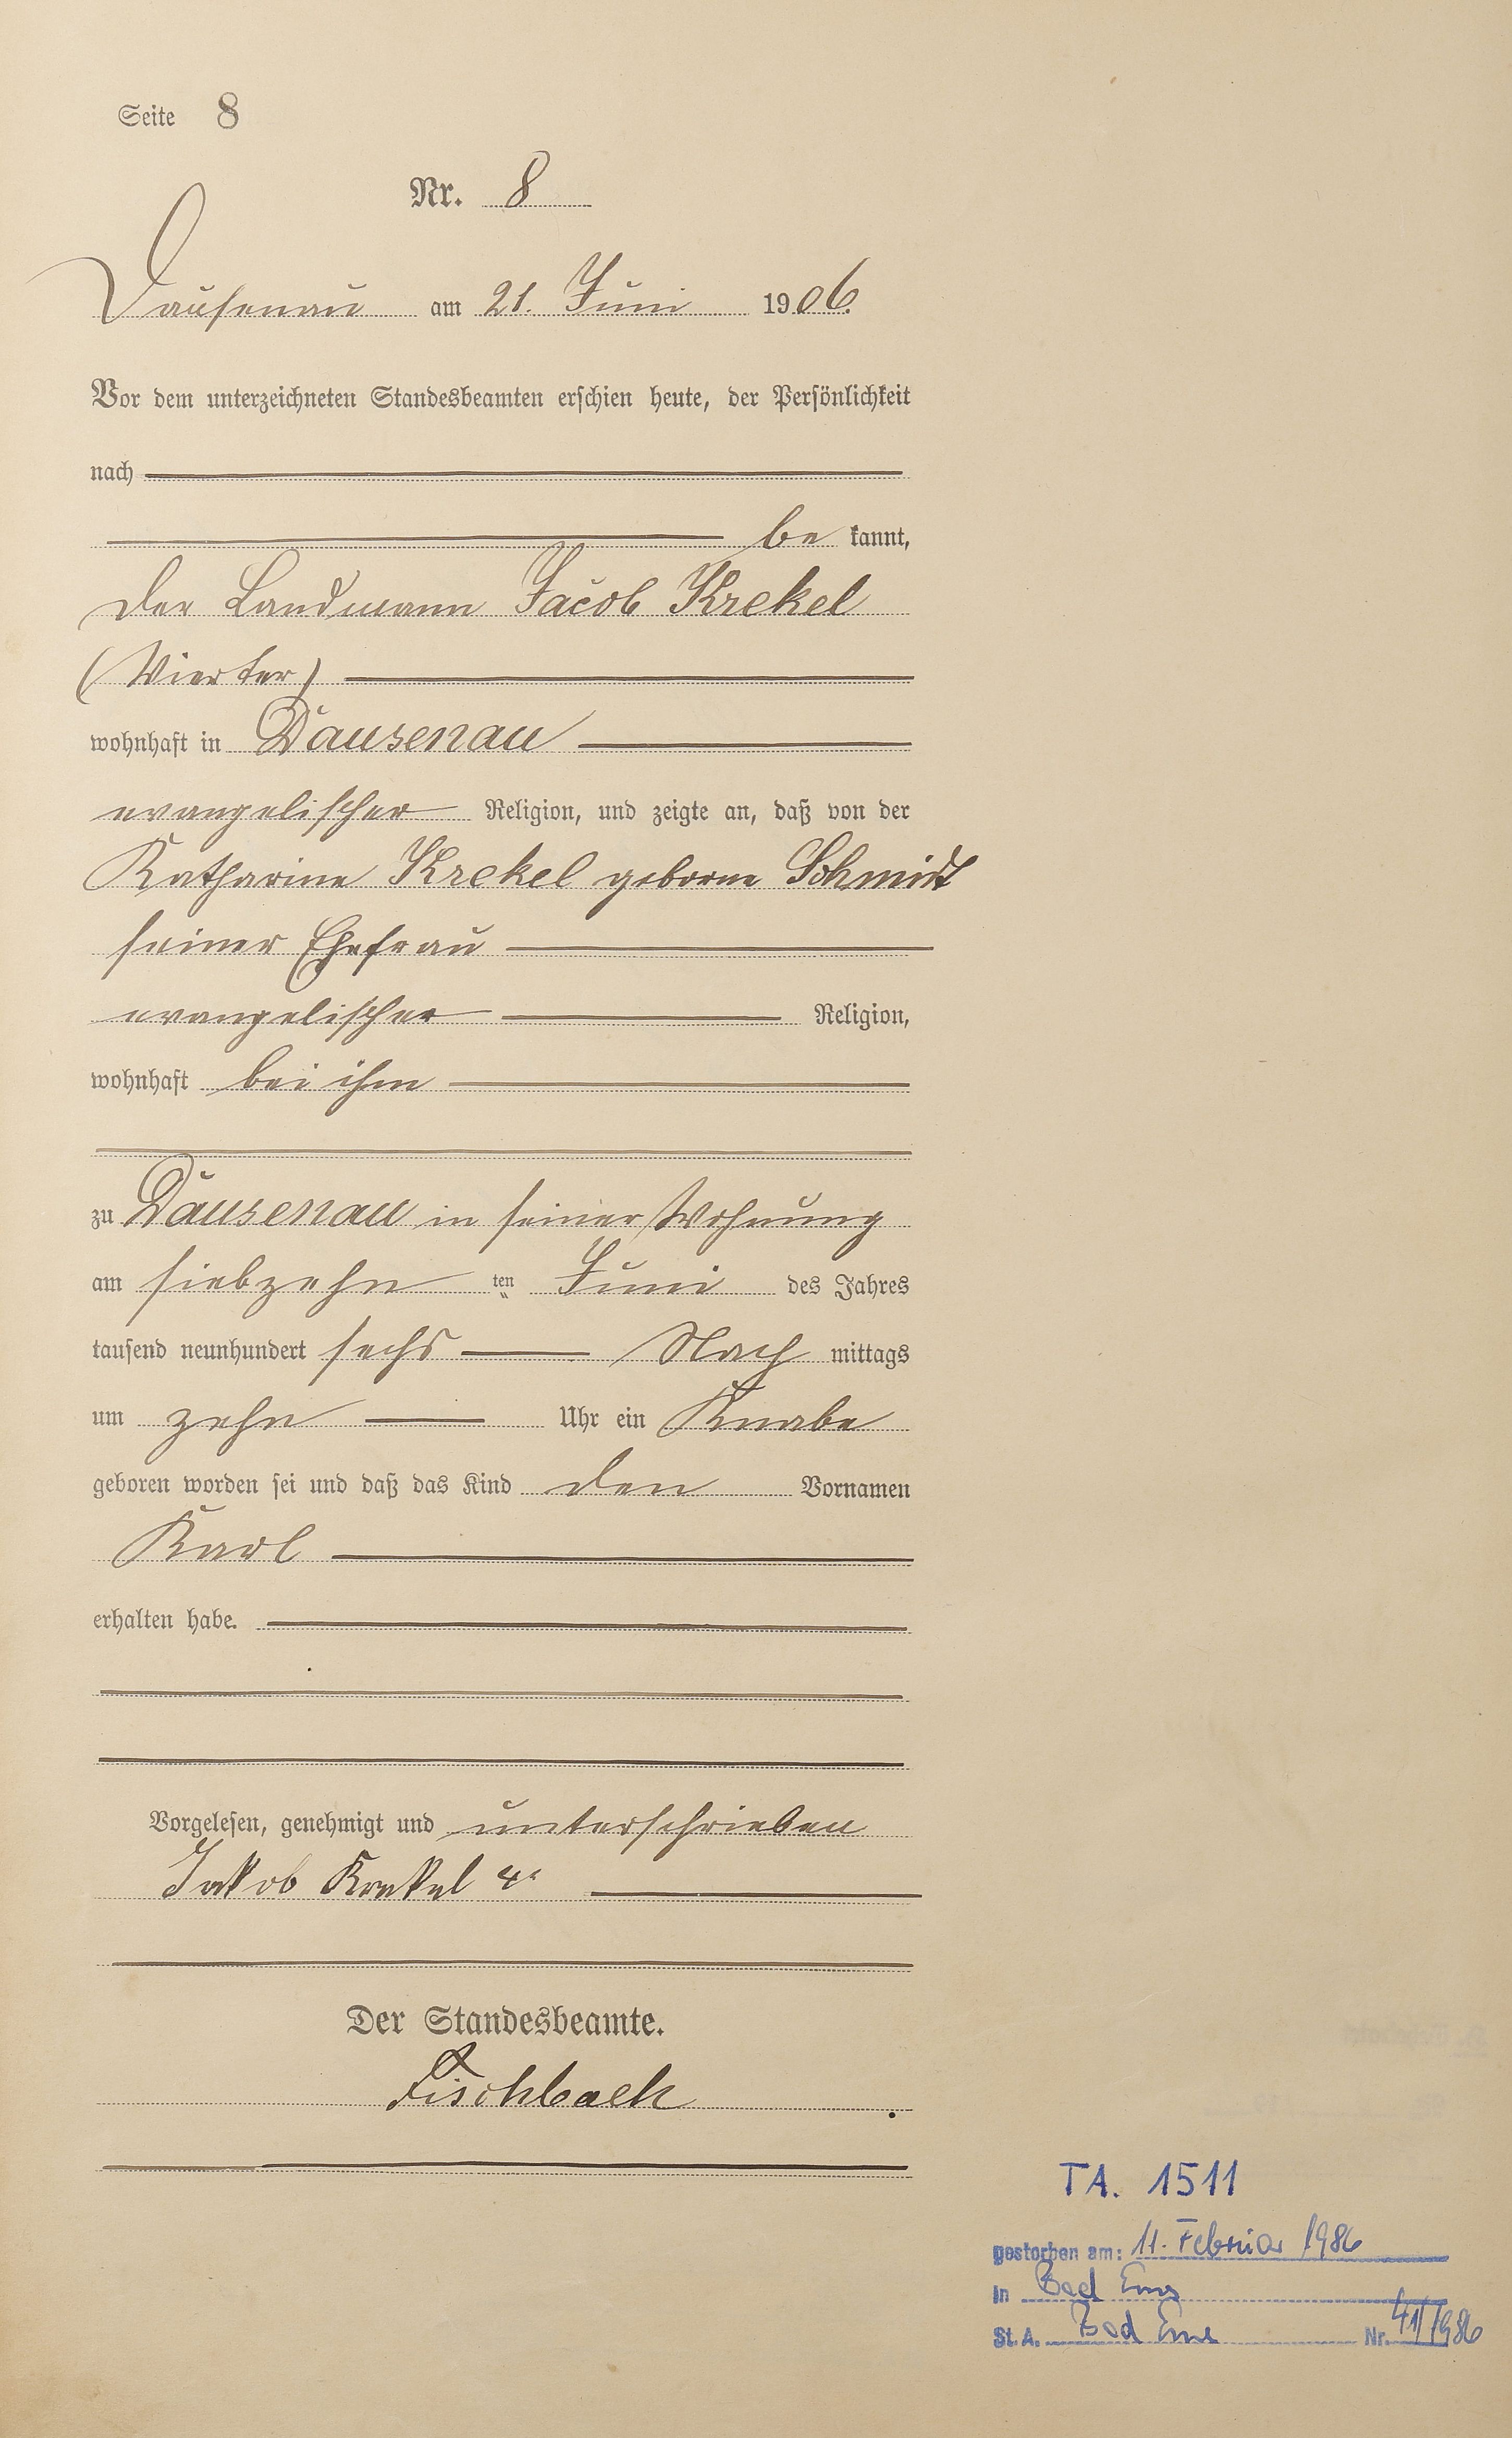 Seite 8
Nr. 8
Dausenau am 21. Juni 1906.
Vor dem unterzeichneten Standesbeamten erschien heute, der Persönlichkeit
nach
be kannt,
der Landmann Jacob Krekel
(Vierter)
wohnhaft in Dausenau
evangelischer Religion, und zeigte an, daß von der
Katharine Krekel geborne Schmidt
seiner Ehefrau
evangelischer Religion,
wohnhaft bei ihm
zu Dausenau in seiner Wohnung
am siebzehn ten Juni des Jahres
tausend neunhundert sechs Nach mittags
um zehn Uhr ein Knabe
geboren worden sei und daß das Kind den Vornamen
Karl
erhalten habe.
Vorgelesen, genehmigt und unterschrieben
Jakob Krekel 4r
Der Standesbeamte.
Fischbach
TA. 1511
gestorben am: 11. Februar 1986
in Bad Ems
St. A. Bad Ems Nr. 41/1986